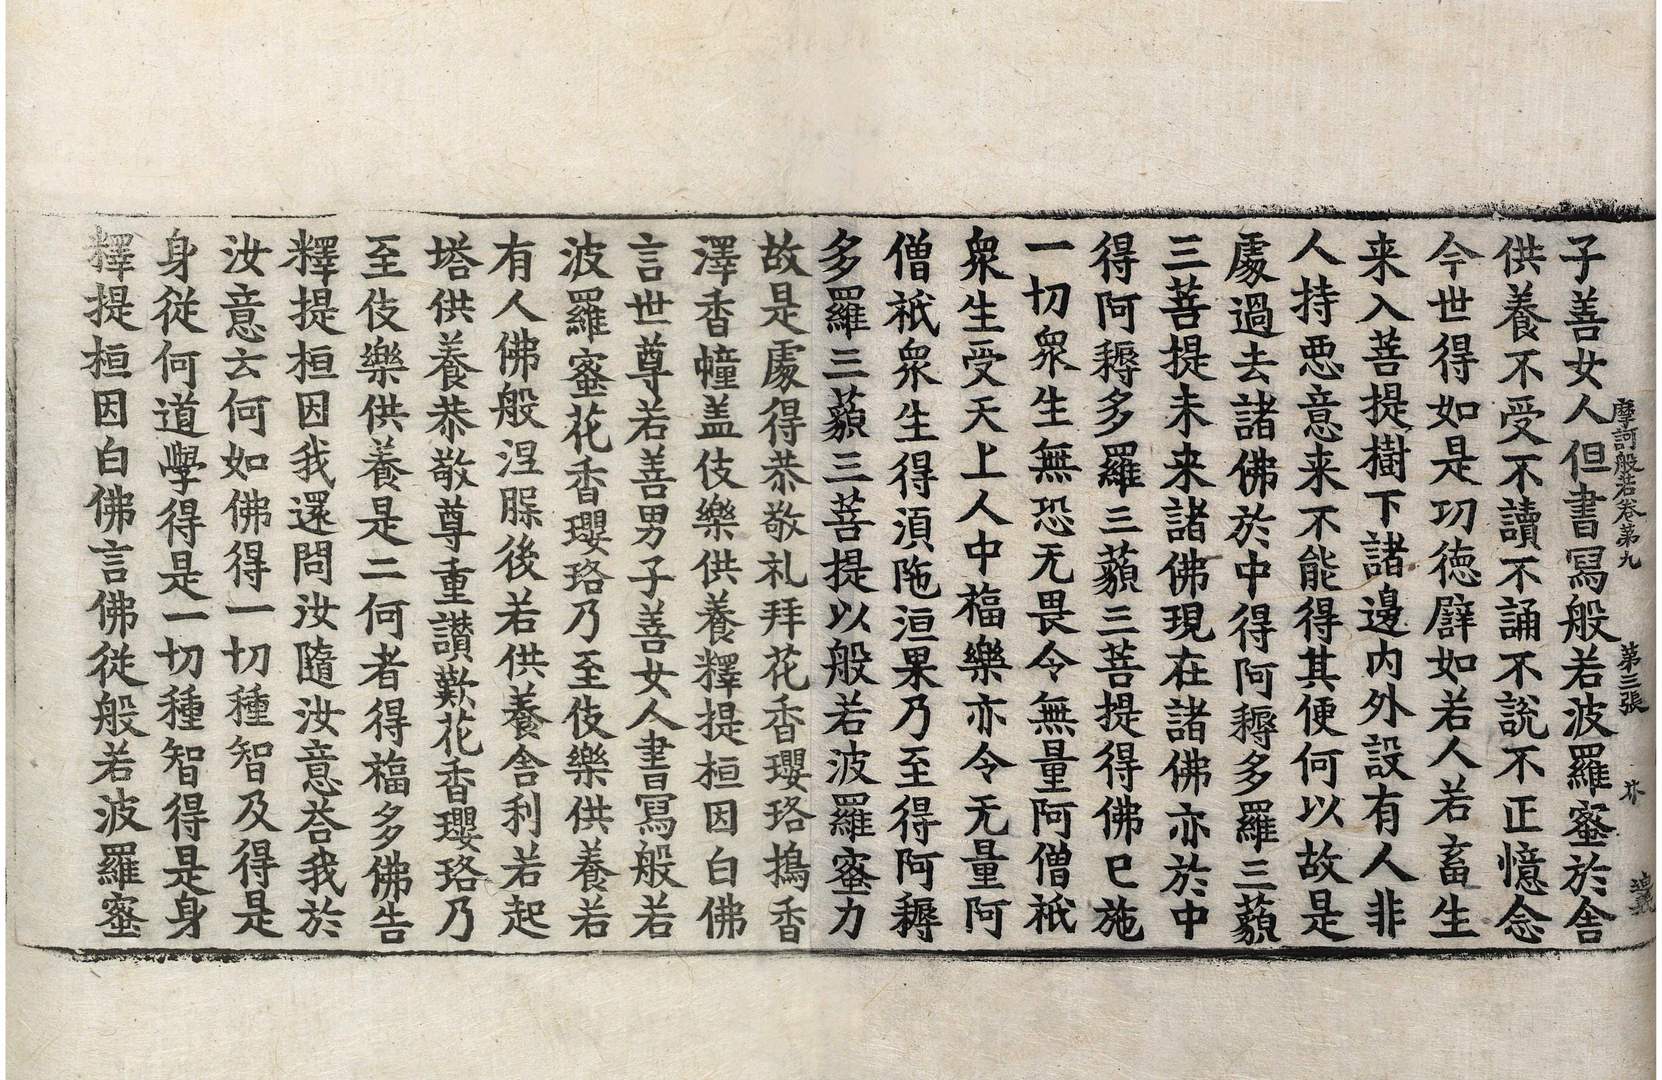 摩訶般若卷第九　第三張　芥
子善女人但書寫般若波羅蜜於舍
供養不受不讀不誦不說不正憶念
今世得如是功德譬如若人若畜生
来入菩提樹下諸邊内外設有人非
人持悪意来不能得其便何以故是
處過去諸佛於中得阿耨多羅三藐
三菩提未来諸佛現在諸佛亦於中
得阿耨多羅三藐三菩提得佛已施
一切眾生無恐无畏令無量阿僧祇
眾生受天上人中福樂亦令无量阿
僧祇眾生得湏陁洹果乃至得阿耨
多羅三藐三菩提以般若波羅蜜力
故是處得恭敬礼拜花香瓔珞搗香
澤香幢盖伎樂供養釋提桓因白佛
言世尊若善男子善女人書寫般若
波羅蜜花香瓔珞乃至伎樂供養若
有人佛般涅槃後若供養舍利若起
塔供養恭敬尊重讚歎花香瓔珞乃
至伎樂供養是二何者得福多佛告
釋提桓因我還問汝隨汝意荅我於
汝意云何如佛得一切種智及得是
身從何道學得是一切種智得是身
釋提桓因白佛言佛從般若波羅蜜